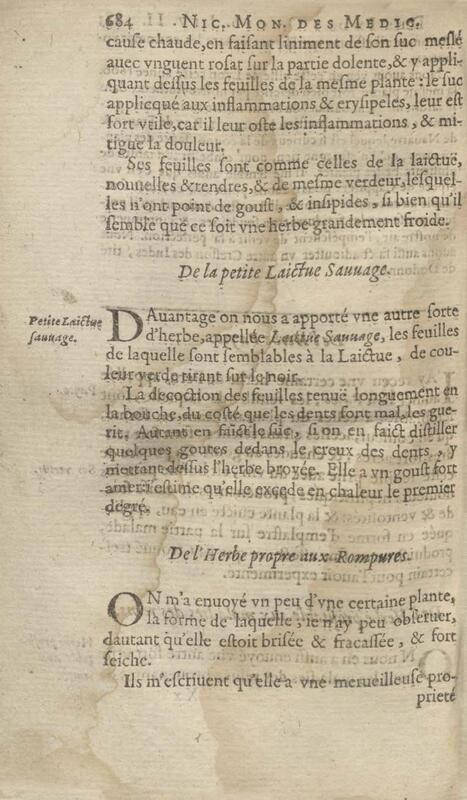 684 NIC. MON. DES MEDIC.
cause chaude, en faisant liniment de son suc meslé
auec vnguent rosat sur la partie dolente, & y appli-
quant dessus les feuilles de la mesme plante: le suc
applicqué aux inflammations & erysipeles, leur est
fort vtile, car il leur oste les inflammations, & mi-
tigue la douleur.
Ses feuilles sont comme celles de la laictuë,
nouuelles & tendres, & de mesme verdeur, lesquel-
les n'ont point de goust, & insipides, si bien qu'il
semble que ce soit vne herbe grandement froide.
De la petite Laictue Sauuage.
Petite Laictue
sauuage.
DAuantage on nous a apporté vne autre sorte
d'herbe, appellée Laictue Sauuage, les feuilles
de laquelle sont semblables à la Laictue, de cou-
leur verde tirant sur le noir.
La decoction des feuilles tenuë longuement en
la bouche, du costé que les dents font mal, les gue-
rit. Autant en faict le suc, si on en faict distiller
quelques goutes dedans le creux des dents, y
mettant dessus l'herbe broyée. Elle a vn goust fort
amer: i'estime qu'elle excede en chaleur le premier
degré.
De l'Herbe propre aux Rompures.
ON m'a enuoyé vn peu d'vne certaine plante,
la forme de laquelle, ie n'ay peu obseruer,
dautant qu'elle estoit brisée & fracassée, & fort
seiche.
Ils m'escriuent qu'elle a vne merueilleuse pro-
prieté